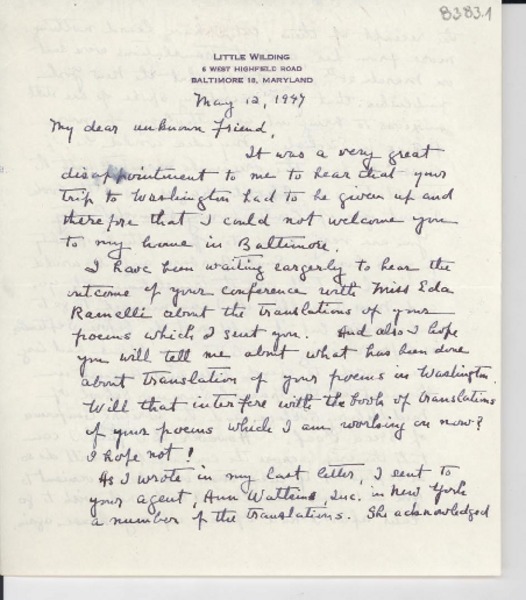 8383.1
LITTLE WILDING
6 WEST HIGHFIELD ROAD
BALTIMORE 18, MARYLAND
May 12, 1947
My dear unknown friend,
It was a very great
disappointment to me to hear that your
trip to Washington had to be given up and
therefore that I could not welcome you
to my home in Baltimore.
I have been waiting eargerly to hear the
outcome of your conference with Miss Eda
Ramelli about the translations of your
poems which I sent you. And also I hope
you will tell me about what has been done
about translation of your poems in Washington.
Will that interfere with the book of translations
of your poems which I am working on now?
I hope not!
As I wrote in my last letter, I sent to
your agent, Ann Watkins, Inc. in New York
a number of the translations. She acknowledged